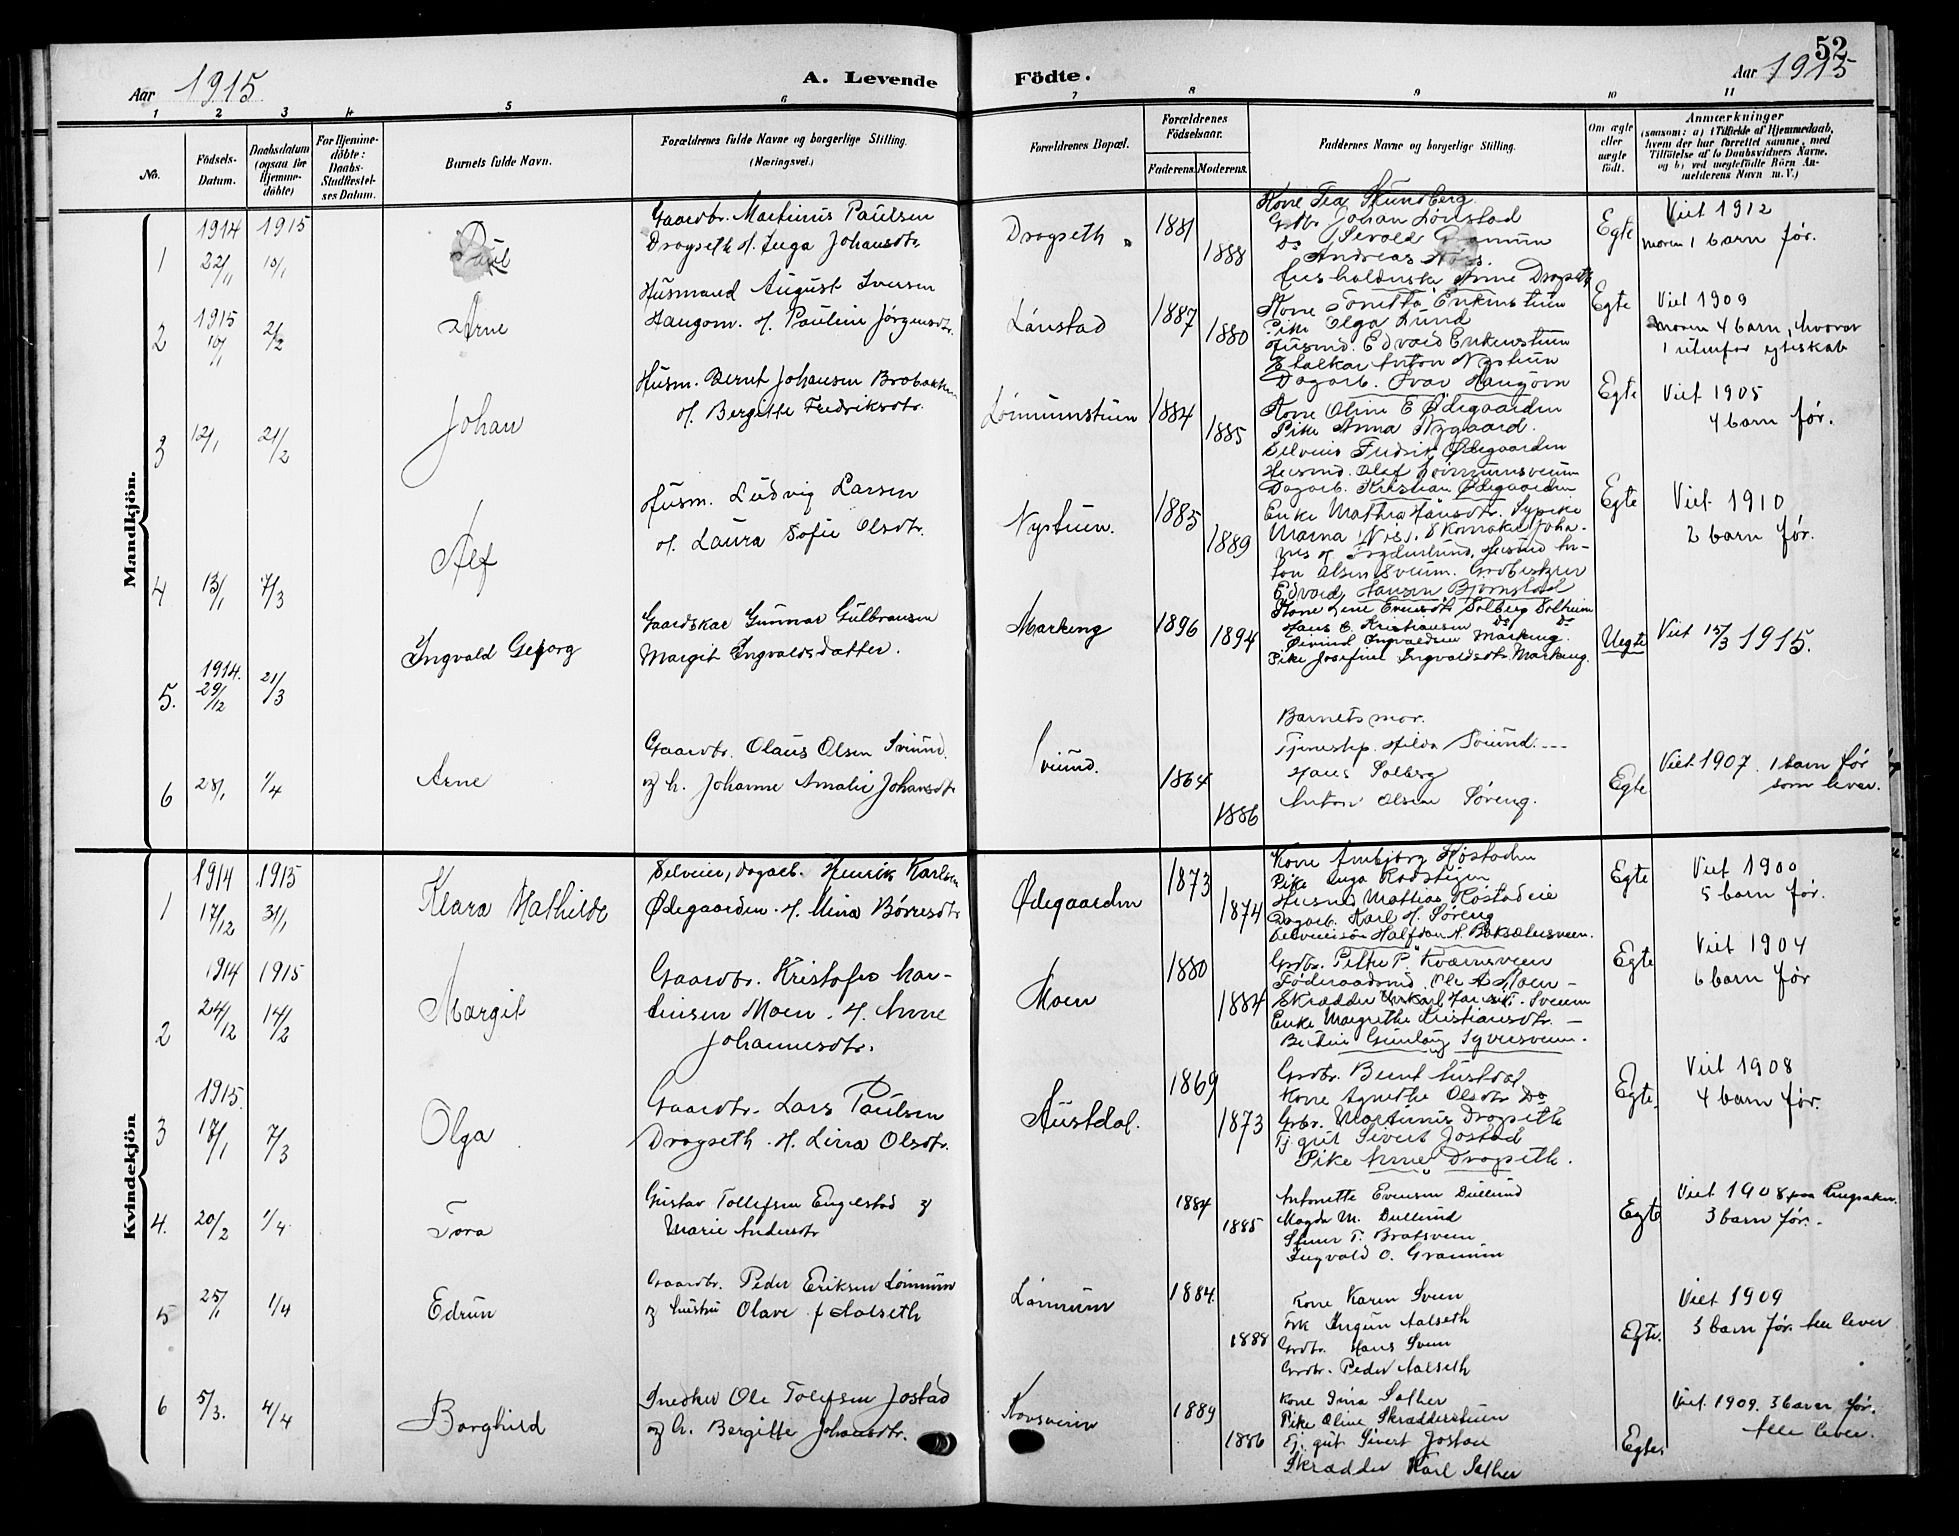 52
Aar 1915
A. Levende
Födte.
Aar 1915
1 2 3 4 5 6 7 8 9 10 11
No.
Födsels-
Datum.
Daabsdatum
(ogsaa for
Hjemme-
döbte)
For Hjemme-
döbte:
Daabs-
Stadfestel-
ses Datum.
Barnets fulde Navn.
Forældrenes fulde Navne og borgerlige Stilling.
(Næringsvei.)
Forældrenes Bopæl.
Forældrenes
Födselsaar.
Faderens. Moderens.
Faddernes Navne og borgerlige Stilling.
Om ægte
eller
uægte
födt.
Anmærkninger
(saasom: a) i Tilfælde af Hjemmedaab,
hvem der har forrettet samme, med
Tilföielse af to Daabsvidners Navne,
og b) ved uegtefödte Börn An-
melderens Navn m. V.)
Mandkjön.
1
1914
22/11
1915
10/1
Paul
Gaardbr. Martinus Paulsen
Drogseth H. Inga Johansdtr
Drogseth
1881
1888
Kone Tea Skundberg
Grbr. Johan Lønstad
Do Sevald Gramum
Andreas
Husholderske Anne Drogseth
Egte
Viet 1912
moren 1 barn før.
2
1915
10/1
2/2
Arne
Husmand August Iversen
Haugom. H. Pauline Jørgensdtr.
Lønstad
1887
1880
Kone Tonetta
Pike Olga Lund
Husmd. Edvard
Anton Nystuen
Dagarb. Ivar Haugom
Egte
Viet 1909
Moren 4 barn, hvorav
1 utenfor egteskab
3
12/1
21/2
Johan
Husm. Bernt Johansen Brobakken
H. Bergitte Fredriksdtr.
Lønnumstuen
1884
1885
Kone Oline E Ødegaarden
Pike Anna Nygaard.
Selveier Fredrik Ødegaarden
Husmd. Olaf Lønnumsveen
Dagarb. Kristian Ødegaarden
Egte
Viet 1905
4 barn før.
4
13/1
7/3
Alf
Husm. Ludvig Larsen
H. Laura Sofie Olsdtr.
Nystuen.
1885
1889
Enke Mathea Hansdtr. Sypike
Marna Nis, Skomaker Joha-
Husmd An-
ton Olsen Sveum. Grbeskrer
Edvard Hansen Bjørnstad
Egte
Viet 1910
2 barn før.
5.
1914.
29/12
21/3
Ingvald Georg
Gaardskar Gunnar Gulbransen
Margit Ingvaldsdatter.
Markeng
1896
1894
Kone Lene Evensdtr Solberg Solheim
Hans E. Kristiansen Do Do
Øivind Ingvaldsen Markeng.
Pike Josefine Ingvaldsdtr. Markeng.
Uegte
Viet 15/3 1915.
6
28/1
1/4
Arne
Gaardbr. Olaus Olsen Sviund.
og h. Johanne Amalie Johansdtr
Sviund.
1864
1886
Barnets mor.
Tjenestep. Hilda Sviund. ---
Hans Solberg
Anton Olsen Søreng.
Egte
Viet 1907. 1 barn før
som lever.
Kvindekjön
1
1914
17/12
1915
31/1
Klara Mathilde
Selveier, dagarb. Henrik Karlsen
Ødegaarden. H. Mina Børresdtr
Ødegaarden
1873
1874
Kone Ambjørg Høstaden
Pike Inga
Husmd Mattias Høstadeie
Dagarb. Karl H. Søreng
Selveiersøn Halfdan H.
Egte
Viet 1900
5 barn før.
2
1914
24/12
1915
14/2
Margit
Gaardbr. Kristofer Mar-
tinsen Moen. H. Anne
Johannesdtr.
Moen
1880
1884
Grdbr. Petter P. Kværnsveen
Føderaadsmd. Ole A Moen -
Skrædder Sveum
Enke Margrethe Kristiansdtr. -
Gunlaug Syversveen.
Egte
Viet 1904
6 barn før
3
1915.
17/1
7/3
Olga
Gaardbr. Lars Paulsen
Drogseth. H. Lina Olsdtr.
Austdal.
1869
1873
Grdbr. Bernt Austdal
Kone Agnethe Olsdtr Do
Grbr. Martinus Drogseth
Tj. gut Sivert Jostad
Pike Anne Drogseth.
Egte.
Viet 1908
4 barn før.
4.
20/2
1/4
Tora
Gustav Tollefsen Engelstad og
Marie Andersdtr
1884
1885
Antonette Evensen Dullerud
Magda M. Dullerud
T. Bratsveen
Ingvald O. Gramum
Egte
Viet 1908 paa Ringsaker.
3 barn før.
5
25/1
1/4
Edrun
Gaardbr. Peder Eriksen Lønnum
og hustru Olave f Aalseth
Lønnum
1884.
1888
Kone Karen Sveen
Frk Ingun Aalseth
Grdbr. Hans Sveen
Grdbr. Peder Aalseth
Egte.
Viet 1909
3 barn før. Alle lever
6
5/3.
4/4
Borghild
Snedker Ole Tolefsen Jostad
og h. Bergitte Johansdtr.
1889
1886
Kone Irina Sather
Pike Oline Skrædderstuen
Tj. gut Sivert Jostad
Skrædder Karl Sather
Egte.
Viet. 1909. 3 barn før.
Alle lever.